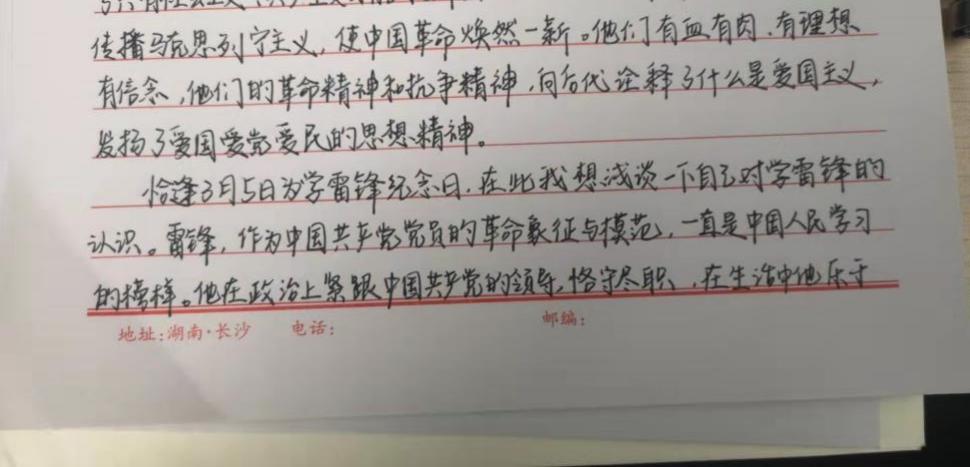 传播马克思列宁主义，使中国革命焕然一新。他们有血有肉、有理想
有信念，他们的革命精神和抗争精神，向后代诠释了什么是爱国主义，
发扬了爱国爱党爱民的思想精神。
恰逢3月5日为学雷锋纪念日，在此我想浅谈一下自己对学雷锋的
认识。雷锋，作为中国共产党党员的革命象征与模范，一直是中国人民学习
的榜样。他在政治上紧跟中国共产党的领导，恪守尽职、在生活中他乐于
地址:湖南·长沙 电话: 邮编: